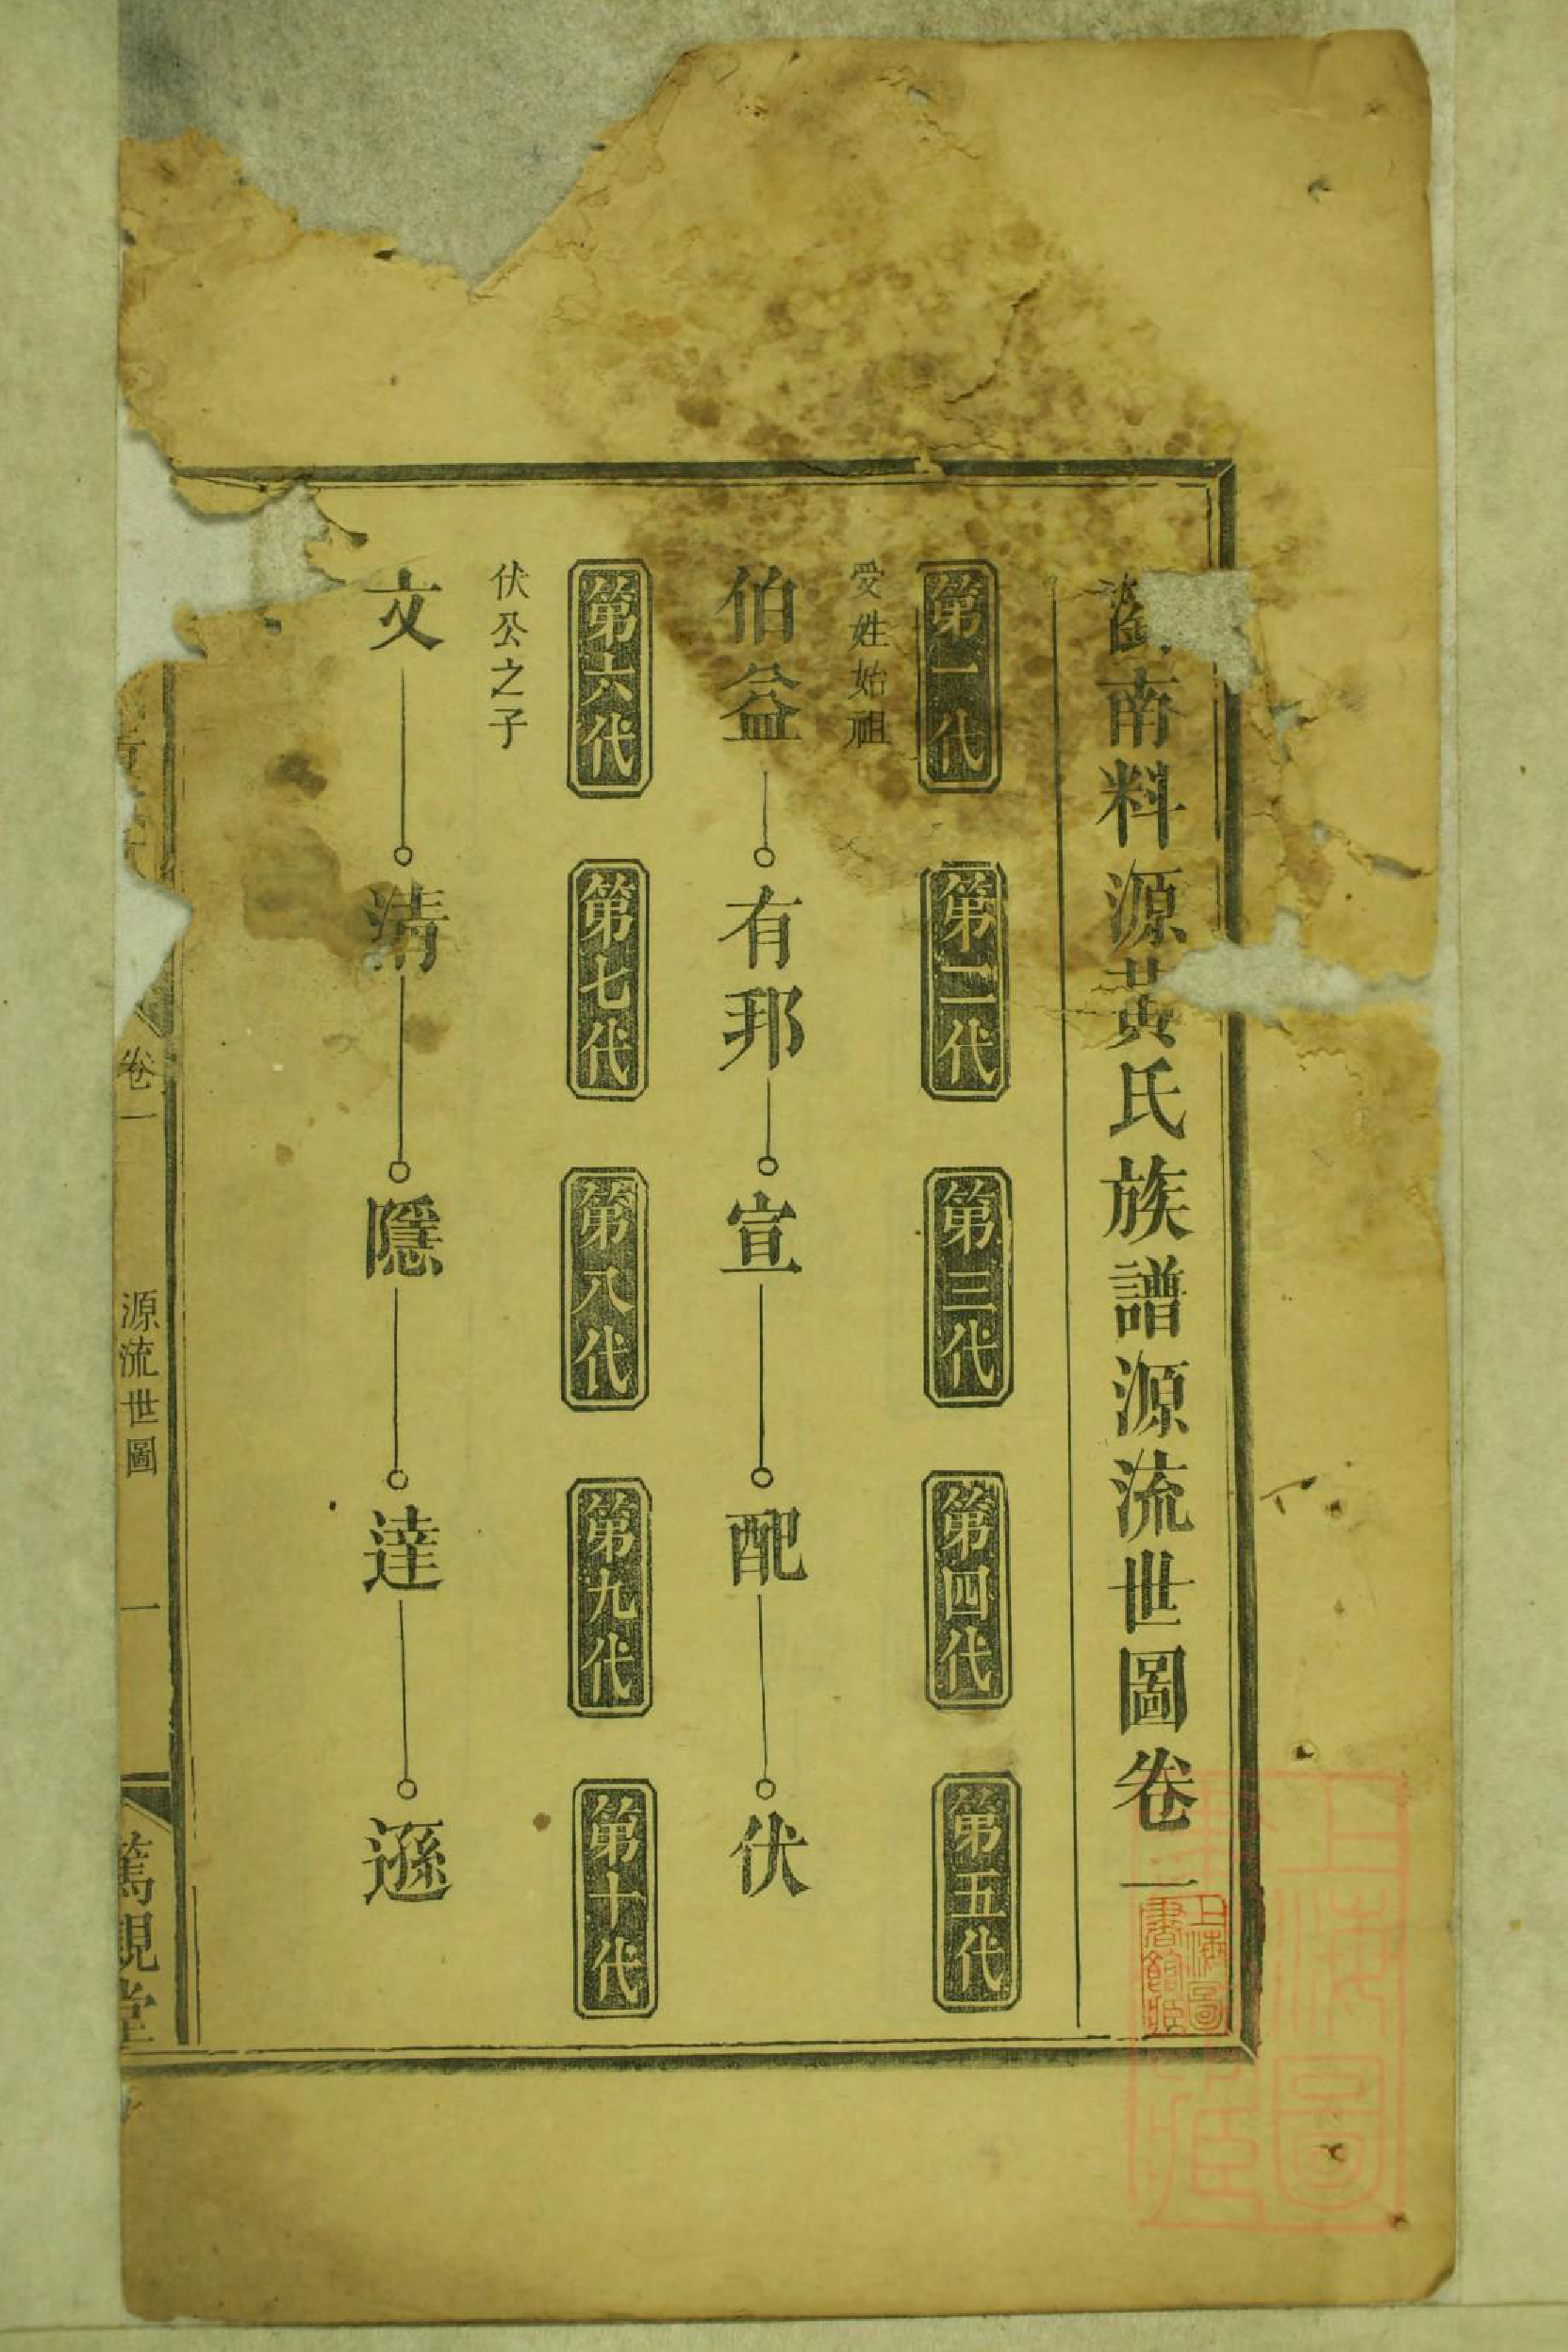 瀏南料源黃氏族譜源流世圖卷一
第一代　第二代　第三代　第四代　第五代
受姓始祖
伯益　有邦　宣　配　伏
第六代　第七代　第八代　第九代　第十代
伏公之子
文　清　隱　達　遜
卷一　源流世圖　一　篤親堂
上海圖書館藏
上海圖書館藏